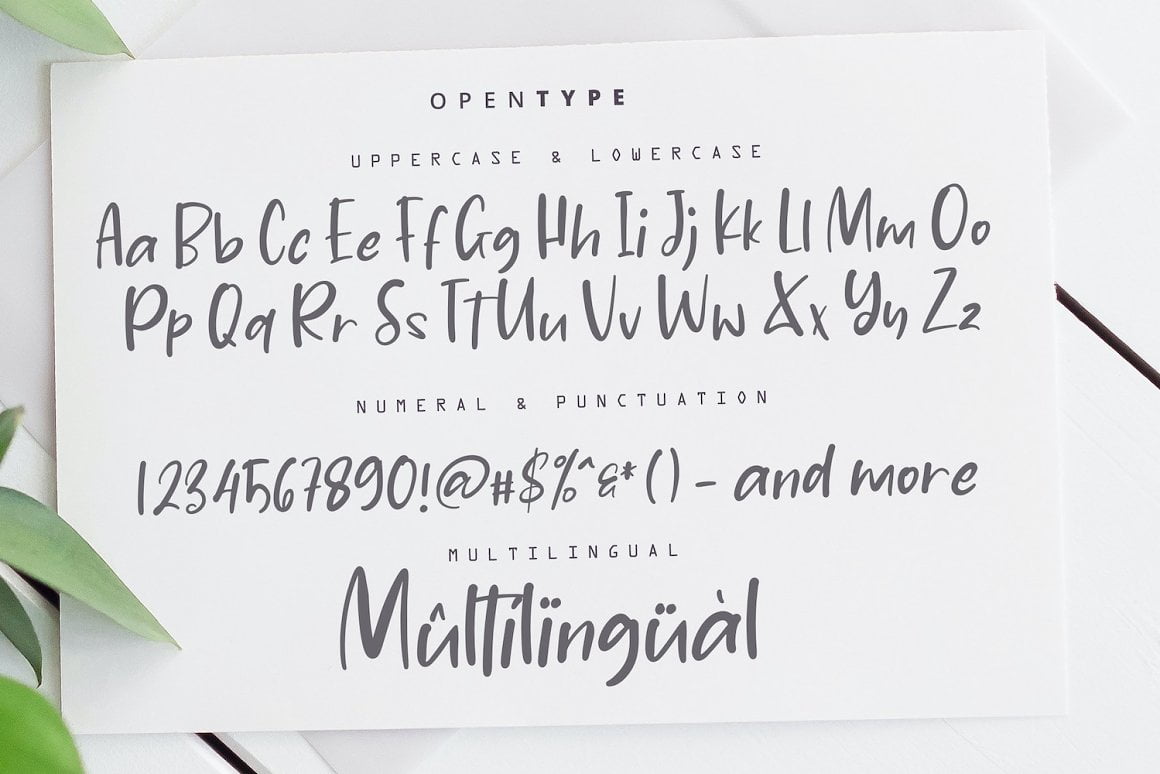 OPENTYPE
UPPERCASE & LOWERCASE
Aa Bb Cc Ee Ff Gg Hh Ii Jj Kk Ll Mm Oo
Pp Qq Rr Ss Tt Uu Vv Ww Xx Yy Zz
NUMERAL & PUNCTUATION
1234567890!@#$%^&*() - and more
MULTILINGUAL
Mûltílïngüàl